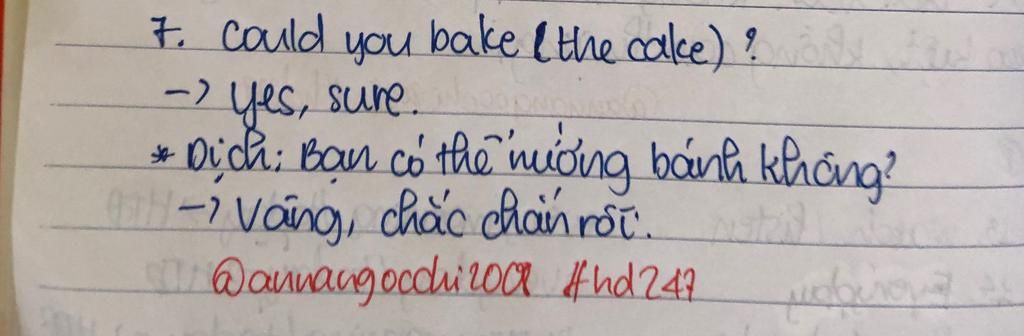 7. Could you bake (the cake)?
-> Yes, sure.
* Dịch: Bạn có thể nướng bánh không?
-> Vâng, chắc chắn rồi.
@annangocchi2009 #hd247